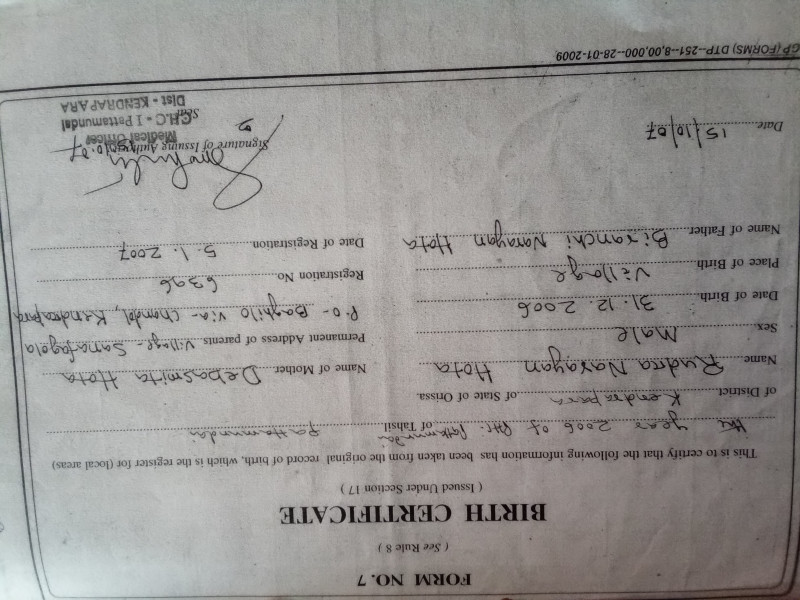 FORM NO. 7
( See Rule 8 )
BIRTH CERTIFICATE
( Issued Under Section 17 )
This is to certify that the following information has been taken from the original record of birth, which is the register for (local areas)
the year 2006 of PHC. Pattamundai of Tahsil Pattamundai
of District Kendrapara of State of Orissa.
Name Rudra Narayan Hota
Name of Mother Debasmita Hota
Sex Male
Permanent Address of parents Village - Sanafagola
P.O - Baghilo Via - Chandol, Kendrapara
Date of Birth 31.12.2006
Registration No. 6396
Place of Birth Village
Date of Registration 5.1.2007
Name of Father Biranchi Narayan Hota
Signature of Issuing Authority
15.10.07
Date 15/10/07
Medical Officer
Seal
C.H.C - I Pattamundai
Dist - KENDRAPARA
GP (FORMS) DTP--251--8,00,000--28-01-2009.